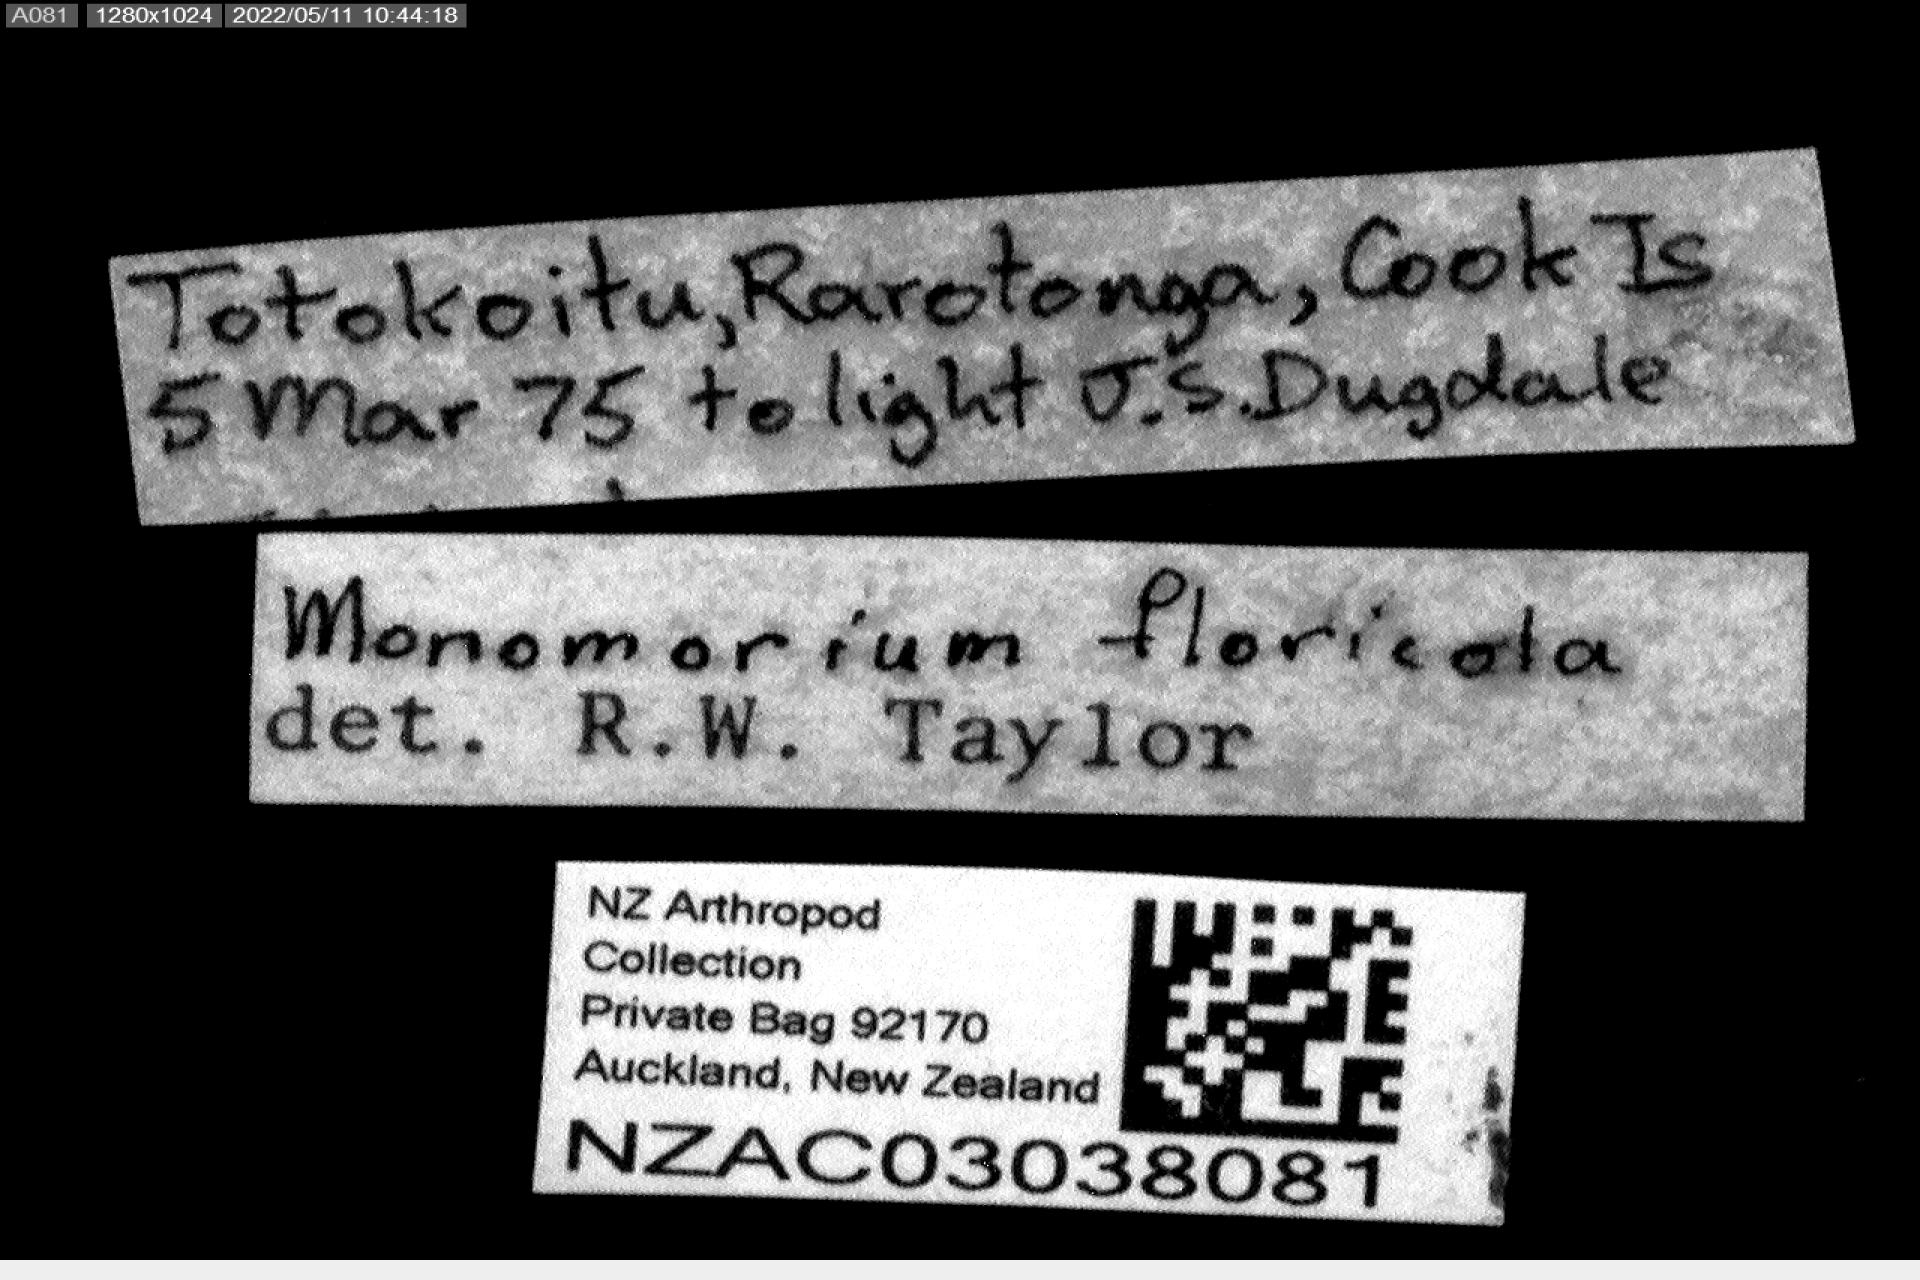 A081 1280x1024 2022/05/11 10:44:18
Totokoitu, Rarotonga, Cook Is
5 Mar 75 to light J.S. Dugdale
Monomorium floricola
det. R.W. Taylor
NZ Arthropod
Collection
Private Bag 92170
Auckland, New Zealand
NZAC03038081